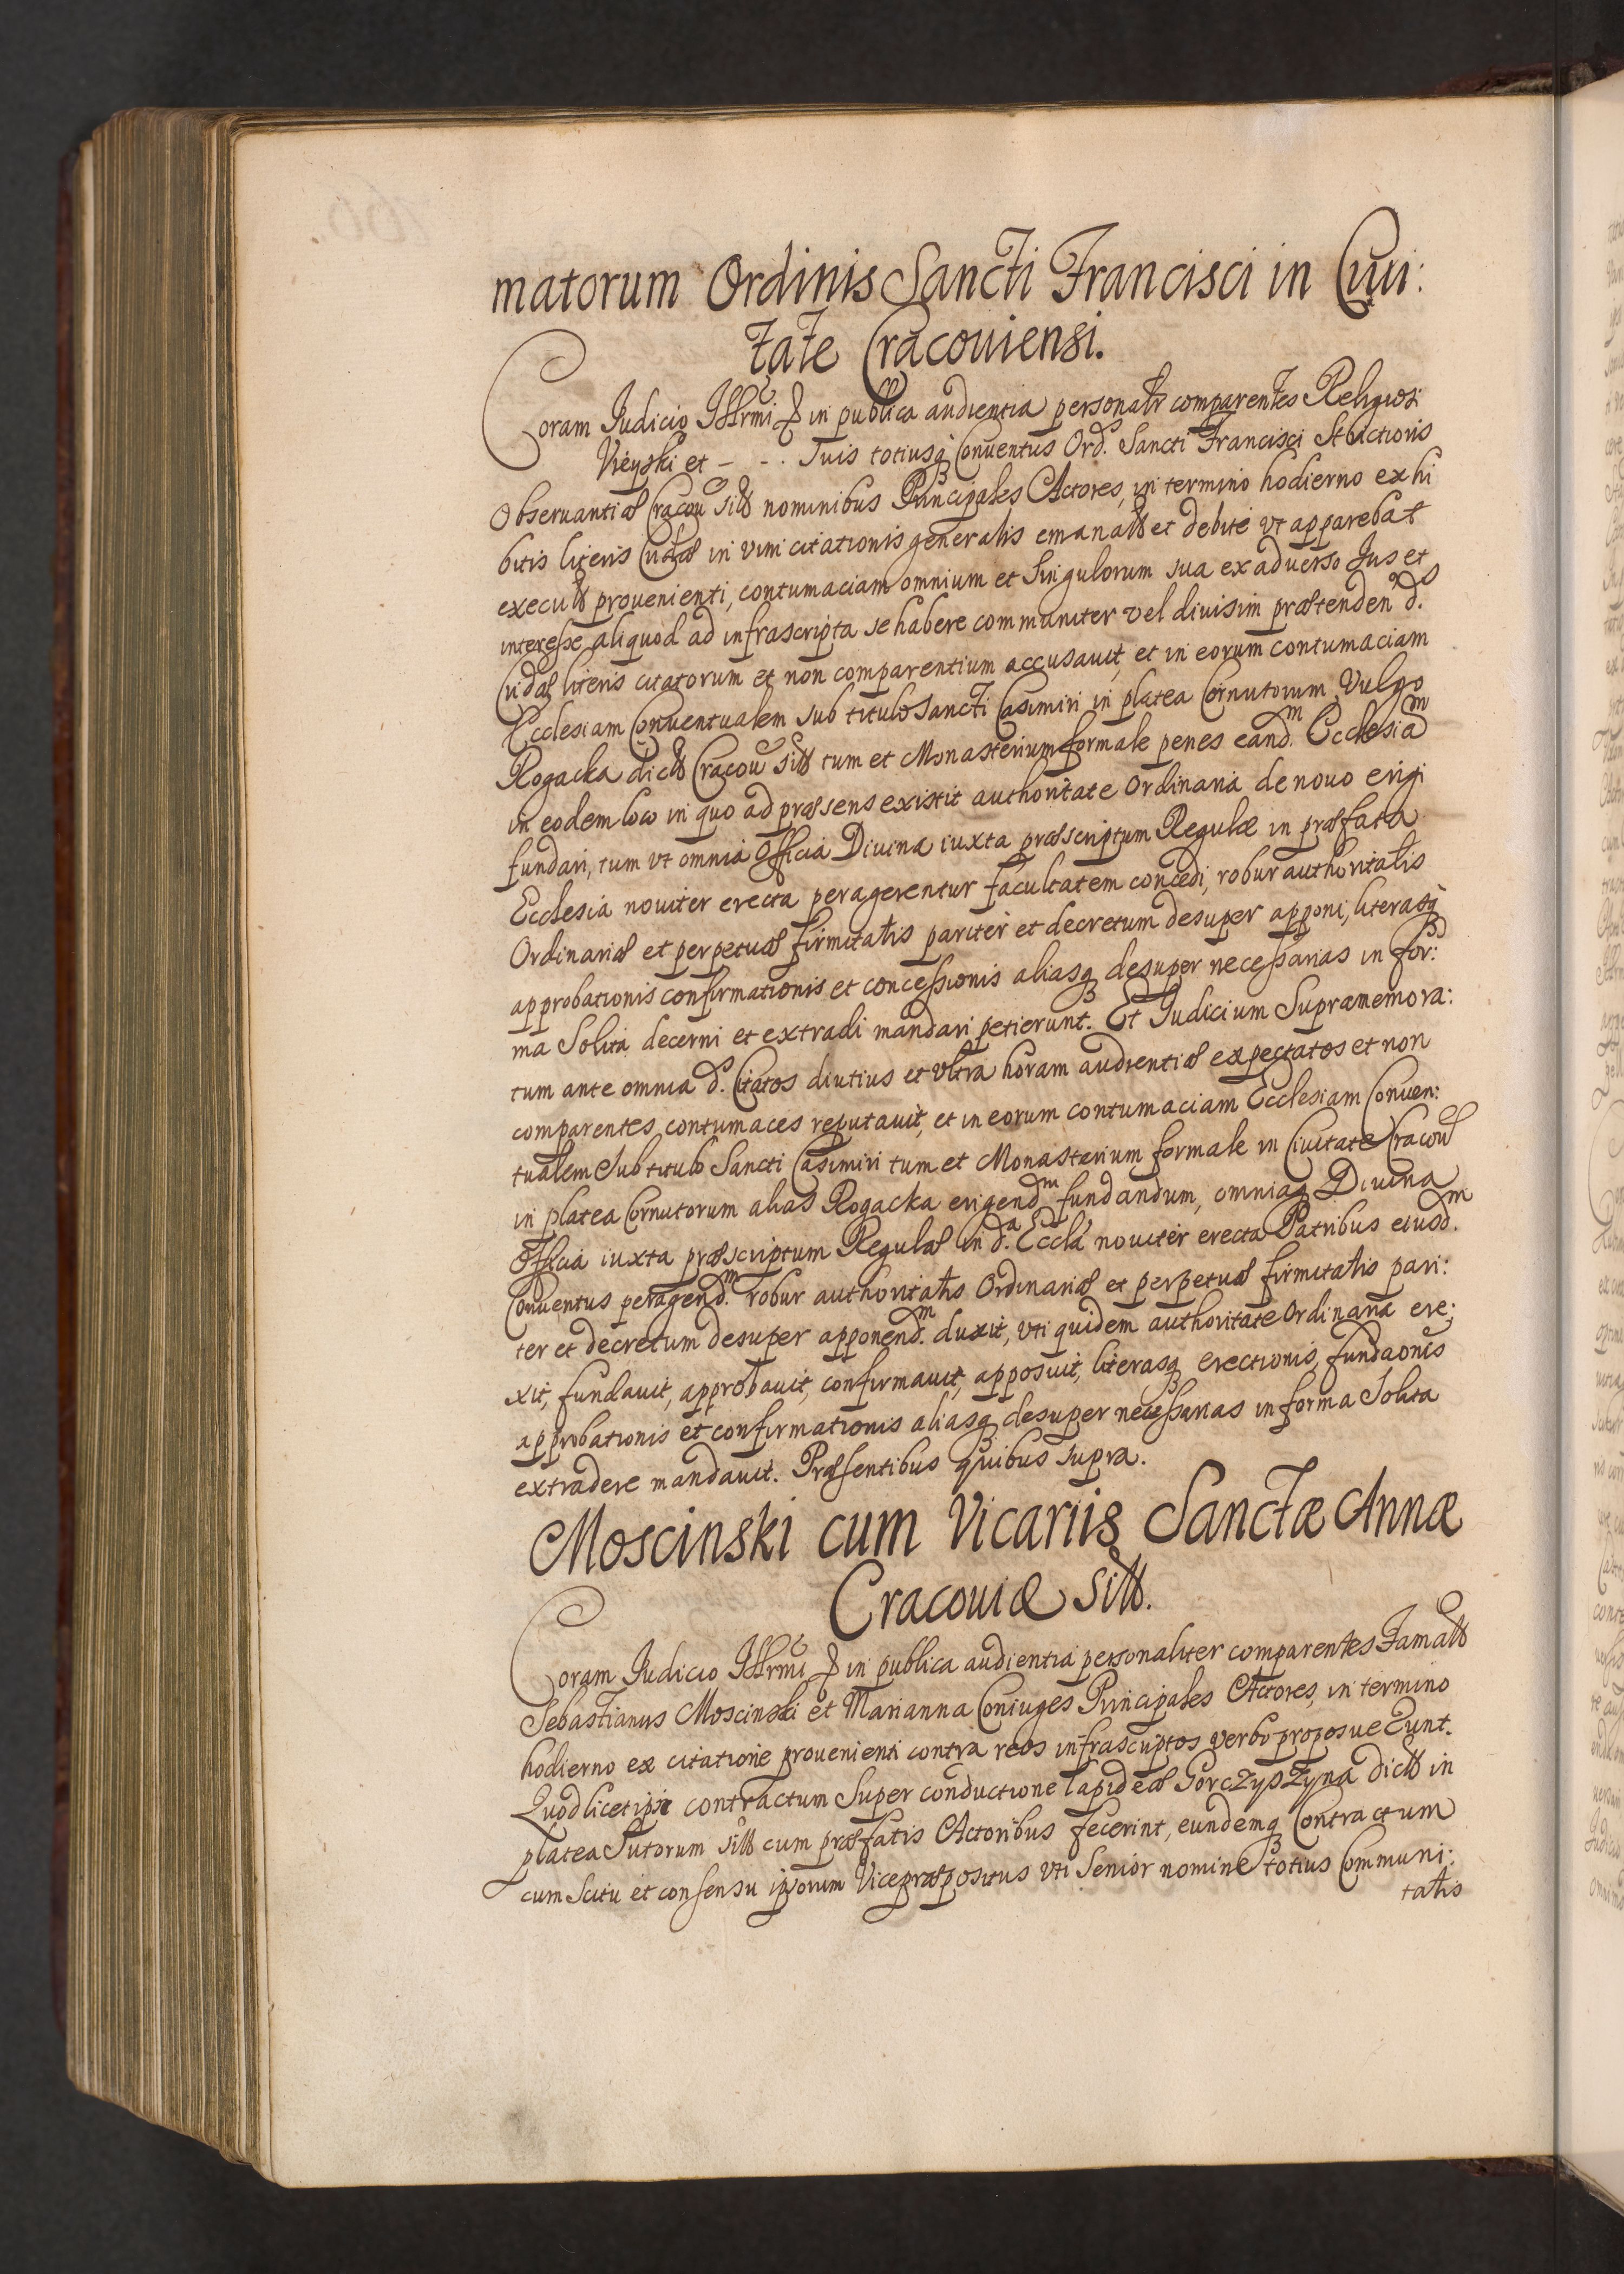 matorum Ordinis Sancti Francisci in Ciui:
tate Cracouiensi.
Coram Judicio Illrmi & in publica audientia personalr comparentes Religiosi
Vieyski et - - . Suis totiusq Conuentus Ord. Sancti Francisci Strictioris
Obseruantiae Cracou sitt nominibus Principales Actores, in termino hodierno exhi
bitis literis Cridae in vim citationis generalis emanatt et debite vt apparebat
executt prouenienti, contumaciam omnium et Singulorum sua ex aduerso Jus et
interesse aliquod ad infrascripta se habere communiter vel diuisim praetenden d.
Cridae literis citatorum et non comparentium accusauit, et in eorum contumaciam
Ecclesiam Conuentualem sub titulo Sancti Casimiri in platea Cornutorum Vulgo
Rogacka dictt Cracou sitt tum et Monasterium formale penes eand.m Ecclesiam
in eodem loco in quo ad praesens existit authoritate Ordinaria de nouo erigi
fundari, tum vt omnia Officia Diuina iuxta praescriptum Regulae in praefata
Ecclesia nouiter erecta peragerentur facultatem concedi, robur authoritatis
Ordinariae et perpetuae firmitatis pariter et decretum desuper apponi, literasq
approbationis confirmationis et concessionis aliasq desuper necessarias in for:
ma Solita decerni et extradi mandari petierunt. Et Judicium Supramemora:
tum ante omnia d. Citatos diutius et vltra horam audientiae expectatos et non
comparentes contumaces reputauit, et in eorum contumaciam Ecclesiam Conuen:
tualem Sub titulo Sancti Casimiri tum et Monasterium formale in Ciuitate Cracou
in platea Cornutorum alias Rogacka erigend.m fundandum, omniaq Diuina
Officia iuxta praescriptum Regulae in d.a Eccla nouiter erecta Patribus eiusd.m
Conuentus peragend.m robur authoritatis Ordinariae et perpetuae firmitatis pari:
ter et decretum desuper apponend.m duxit, vti quidem authoritate Ordinaria ere:
xit, fundauit, approbauit, confirmauit, apposuit, literasq erectionis, fundaonis
approbationis et confirmationis aliasq desuper necessarias in forma Solita
extradere mandauit. Praesentibus quibus supra.
Moscinski cum Vicariis Sanctae Annae
Cracouiae sitt.
Coram Judicio Illrmi & in publica audientia personaliter comparentes Famatt
Sebastianus Moscinski et Marianna Coniuges Principales Actores, in termino
hodierno ex citatione prouenienti contra reos infrascriptos verbo proposuerunt.
Quod licet ipsi contractum Super conductione lapideae Gorczyszyna dictt in
platea Sutorum sitt cum praefatis Actoribus fecerint, eundemq Contractum
cum Scitu et consensu ipsorum Vicepraepositus vti Senior nomine totius Communi:
tatis